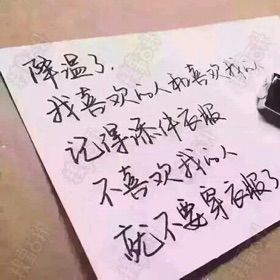 降温了.
我喜欢的人和喜欢我的人
记得添件衣服
不喜欢我的人
就不要穿衣服了